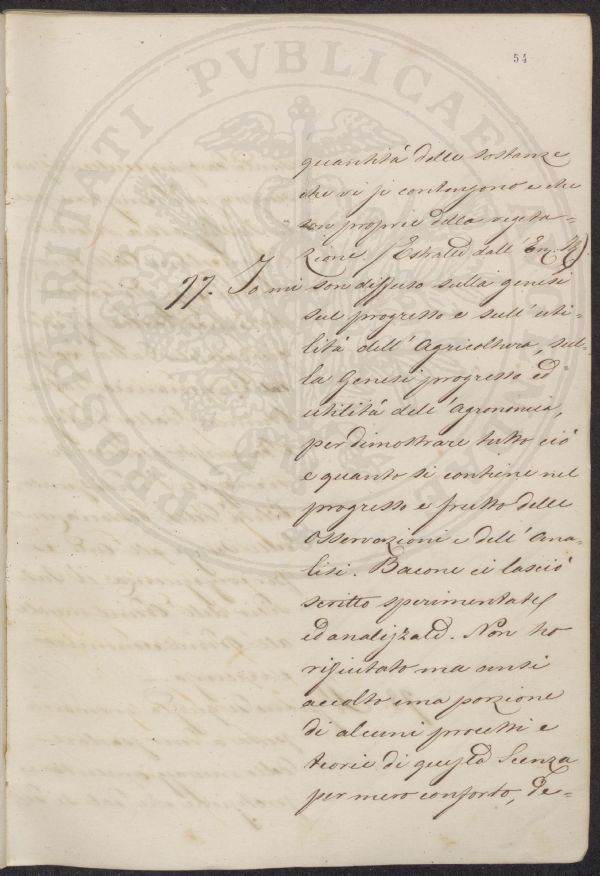 54
quantità delle sostanze
che vi si contengono e che
son proprie della vegeta-
zione. (Estratto dall' Enc. M.)
77. Io mi son diffuso sulla genesi
sul progresso e sull' uti-
lità dell' Agricoltura, sul-
la Genesi progresso ed
utilità dell' Agronomia,
per dimostrare tutto ciò
e quanto si contiene nel
progresso e frutto delle
Osservazioni e dell' Ana-
lisi. Bacone ci lasciò
scritto sperimentate
ed analizzate. Non ho
rifiutato ma ansi
accolto una porzione
di alcuni precetti e
teorie di questa Scenza
per mero conforto, De-
PROSPERITATI PVBLICAE AVGENDAE